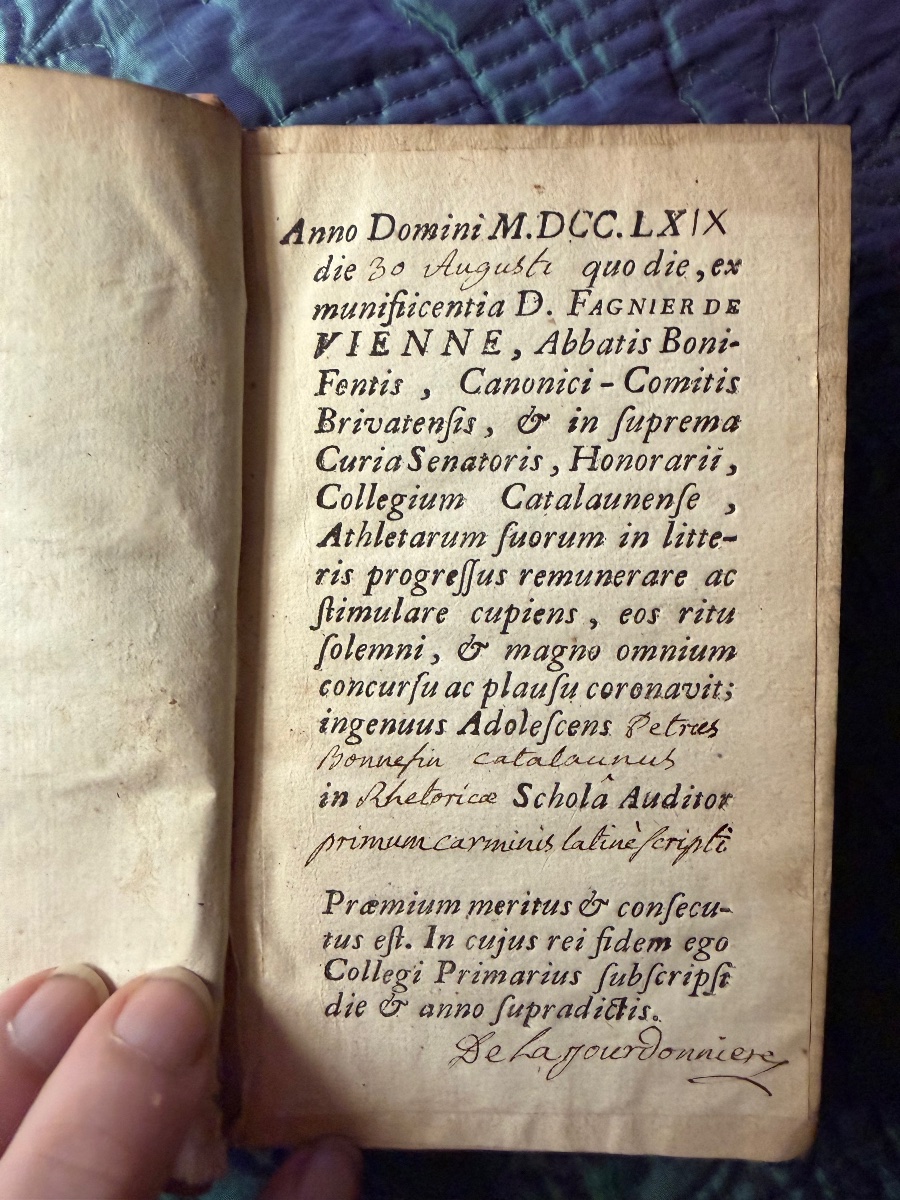 Anno Domini M.DCC.LXIX
die 30 Augusti quo die, ex
munificentia D. FAGNIER DE
VIENNE, Abbatis Boni-
Fentis, Canonici-Comitis
Brivatenſis, & in ſuprema
Curia Senatoris, Honorarii,
Collegium Catalaunenſe,
Athletarum ſuorum in litte-
ris progreſſus remunerare ac
ſtimulare cupiens, eos ritu
ſolemni, & magno omnium
concurſu ac plauſu coronavit;
ingenuus Adoleſcens Petrus
Bonneſin catalaunus
in Rhetoricæ Scholâ Auditor
primum carminis latinè ſcripti
Præmium meritus & conſecu-
tus eſt. In cujus rei fidem ego
Collegi Primarius ſubſcripſi
die & anno ſupradictis.
De La Jourdonniere